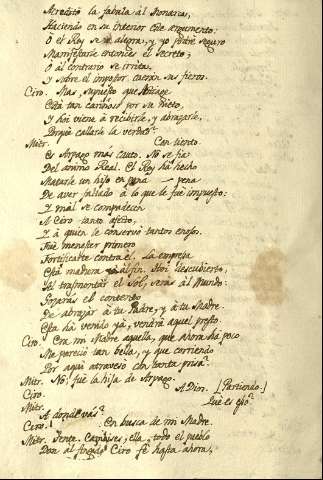 la fabula al Monarca,
Haciendo en su interior este argumento:
O el Rey se alegra, y yo podré seguro
Manifestarle entonces el secreto;
O al contrario se irrita,
Y sobre el impostor caerán sus fieros.
Ciro. Mas, supuesto que
Está tan cariñoso por su Nieto,
Y hoi viene à recibirle, y abrazarle,
Porqué callarle la verdad?
Mitr. Con tiento.
Es Arpago mas cauto. No se fia
Del animo Real. El Rey há hecho
Matarle un hijo en pena
De aver faltado à lo que le fue impuesto:
Y mal se compadecen
A Ciro tanto afecto,
Y à quien le conservó tanto enojo.
Fué menester primero
Fortificarte contra él. La empresa
Está madura al fin. Hoi descubierto,
Al trasmontar el Sol, serás al Mundo:
Gozarás el contento
De abrazar à tu Padre, y à tu Madre.
Esta há venido yá, vendrá aquel presto.
Ciro. Era mi Madre aquella, que ahora há poco
Me pareció tan bella, y que corriendo
Por aqui atravesó con tanta prisa?
Mitr. No; fué la hija de Arpago.
Ciro. A Dios. [Partiendo.]
Mitr. Qué es eso?
A donde vás?
Ciro. En busca de mi Madre.
Mitr. Tente. Cambises, ella, todo el pueblo
Dan al fingido Ciro fé hasta ahora,